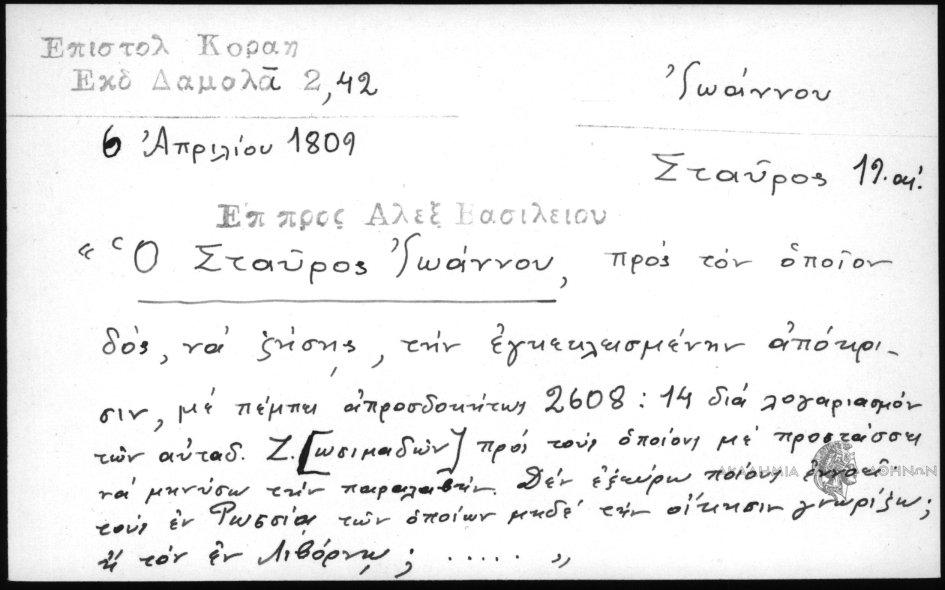 Επιστολ Κοραη
Εκδ Δαμαλᾶ 2,42
Ἰωάννου
6 Ἀπριλίου 1809
Σταῦρος 19. αἰ.
Επ προς Αλεξ Βασιλειου
« Ὁ Σταῦρος Ἰωάννου, πρὸς τὸν ὁποῖον
δός, νὰ ζήσῃς, τὴν ἐγκεκλεισμένην ἀπόκρι-
σιν, μὲ πέμπει ἀπροσδοκήτως 2608 : 14 διὰ λογαριασμὸν
τῶν αὐταδ. Ζ.[ωσιμαδῶν] πρὸς τοὺς ὁποίους μὲ προστάσσει
νὰ μηνύσω τὴν παραλαβήν. Δὲν ἐξεύρω ποίους ἐννοεῖ·
τοὺς ἐν Ῥωσσίᾳ τῶν ὁποίων μηδὲ τὴν οἴκησιν γνωρίζω;
ἢ τὸν ἐν Λιβόρνῳ; ..... »
ΑΚΑΔΗΜΙΑ ΑΘΗΝΩΝ